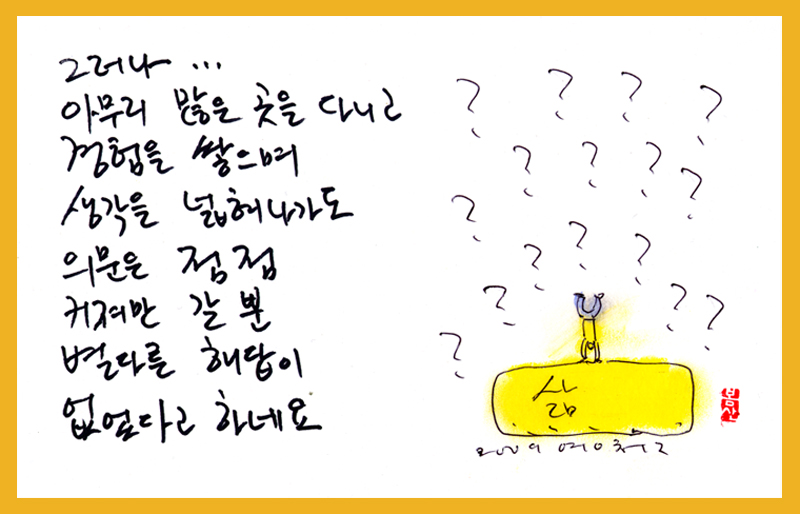 그러나 ...
아무리 많은 곳을 다니고
경험을 쌓으며
생각을 넓혀나가도
의문은 점점
커져만 갈 뿐
별다른 해답이
없었다고 하네요
? ? ? ?
? ? ? ?
? ? ? ?
? ? ? ?
?
삶
봄산
2009